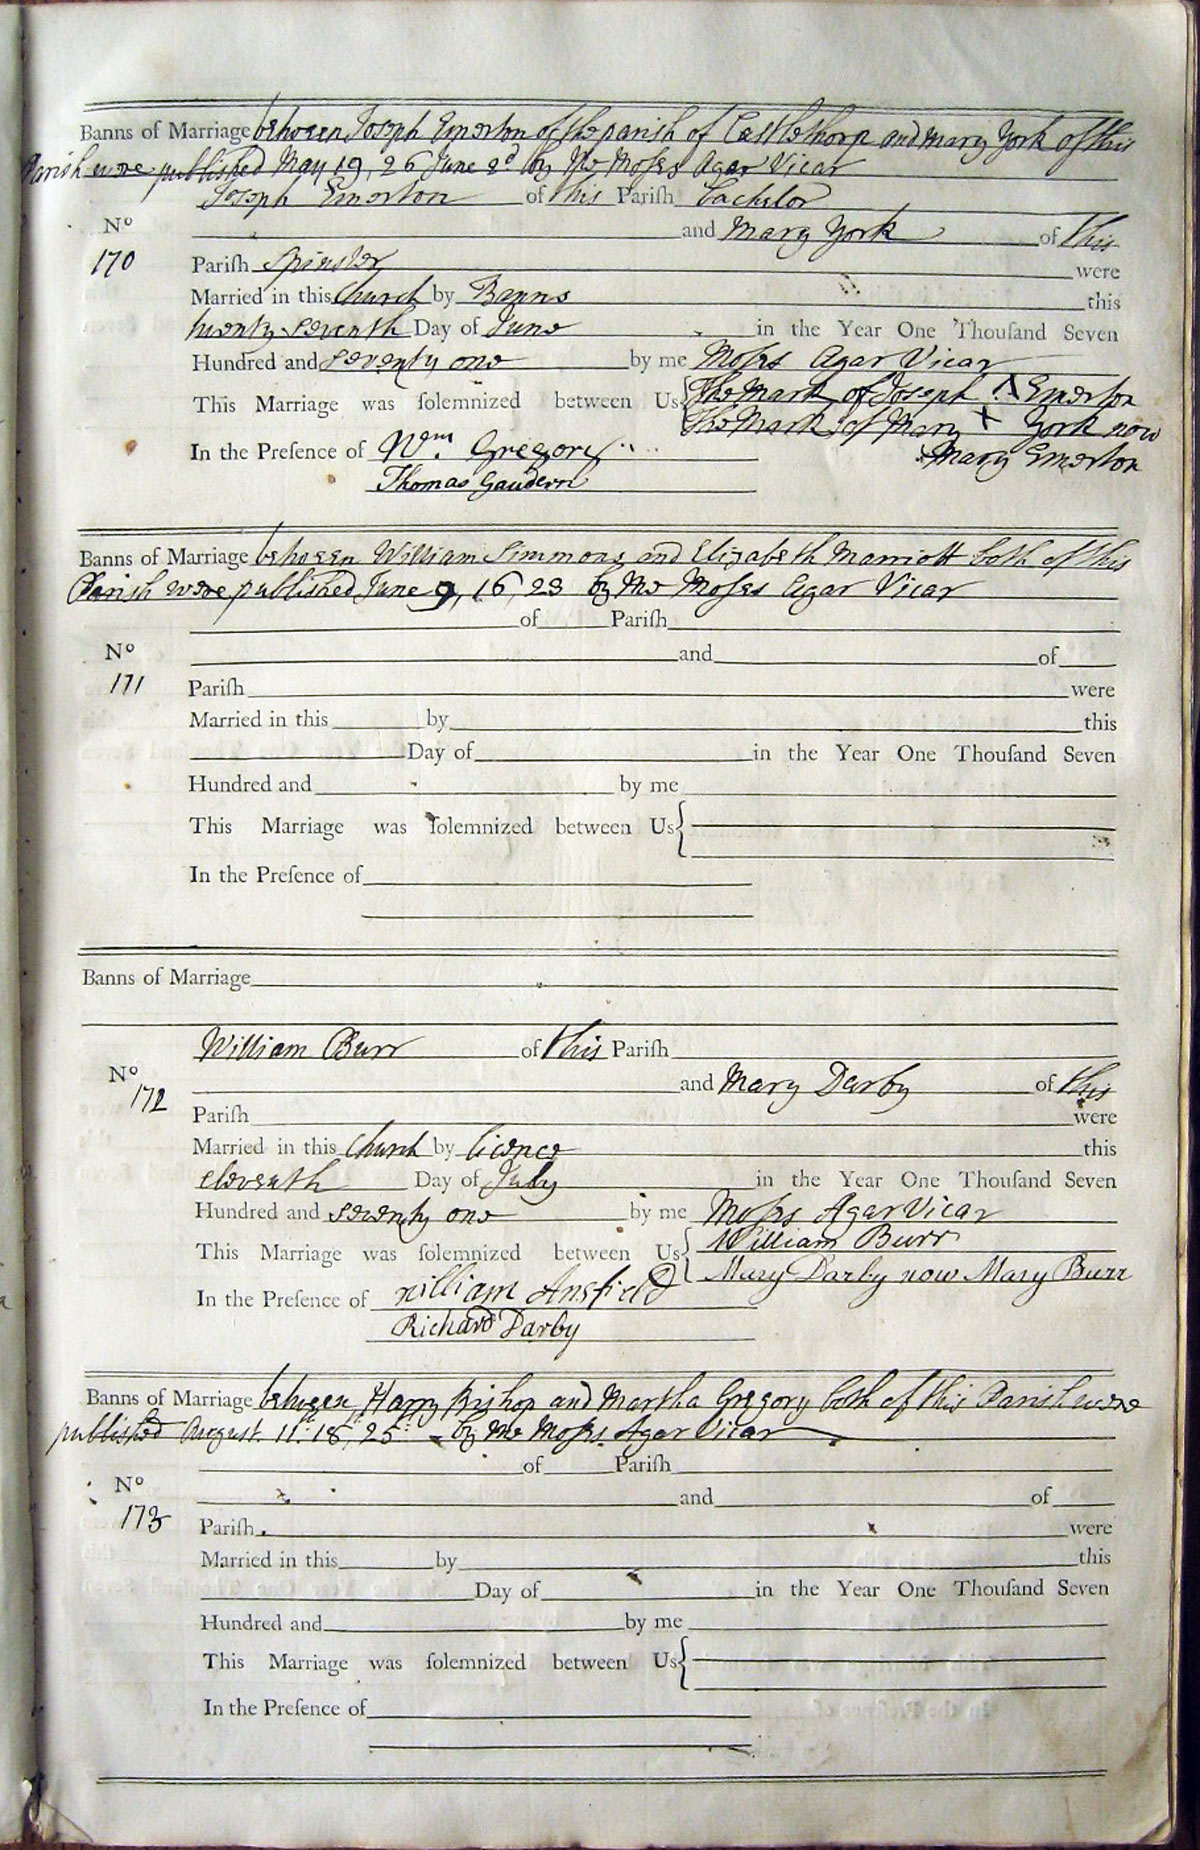 Banns of Marriage between Joseph Emerton of the parish of Castlethorp and Mary York of this
Parish were published May 19, 26 June 2d by Me Moses Agar Vicar
Joseph Emerton of this Pariſh bachelor
No and Mary York of this
170 Pariſh Spinster were
Married in this Church by Banns this
twenty seventh Day of June in the Year One Thouſand Seven
Hundred and seventy one by me Moses Agar Vicar
This Marriage was ſolemnized between Us { The mark of Joseph X Emerton
The Mark of Mary X York now
In the Preſence of Wm. Gregory Mary Emerton
Thomas Gaudern
Banns of Marriage between William Simmons and Elizabeth Marriott both of this
Parish were published June 9, 16, 23 by Me Moses Agar Vicar
of Pariſh
No and of
171 Pariſh were
Married in this by this
Day of in the Year One Thouſand Seven
Hundred and by me
This Marriage was ſolemnized between Us {
In the Preſence of
Banns of Marriage
William Burr of this Pariſh
No and Mary Darby of this
172 Pariſh were
Married in this Church by licence this
eleventh Day of July in the Year One Thouſand Seven
Hundred and seventy one by me Moses Agar Vicar
This Marriage was ſolemnized between Us { William Burr
Mary Darby now Mary Burr
In the Preſence of William Ansfield
Richard Darby
Banns of Marriage between Harry Bishop and Martha Gregory both of this Parish were
published August 11: 18, 25: by Me Moses Agar Vicar
of Pariſh
No and of
173 Pariſh were
Married in this by this
Day of in the Year One Thouſand Seven
Hundred and by me
This Marriage was ſolemnized between Us {
In the Preſence of